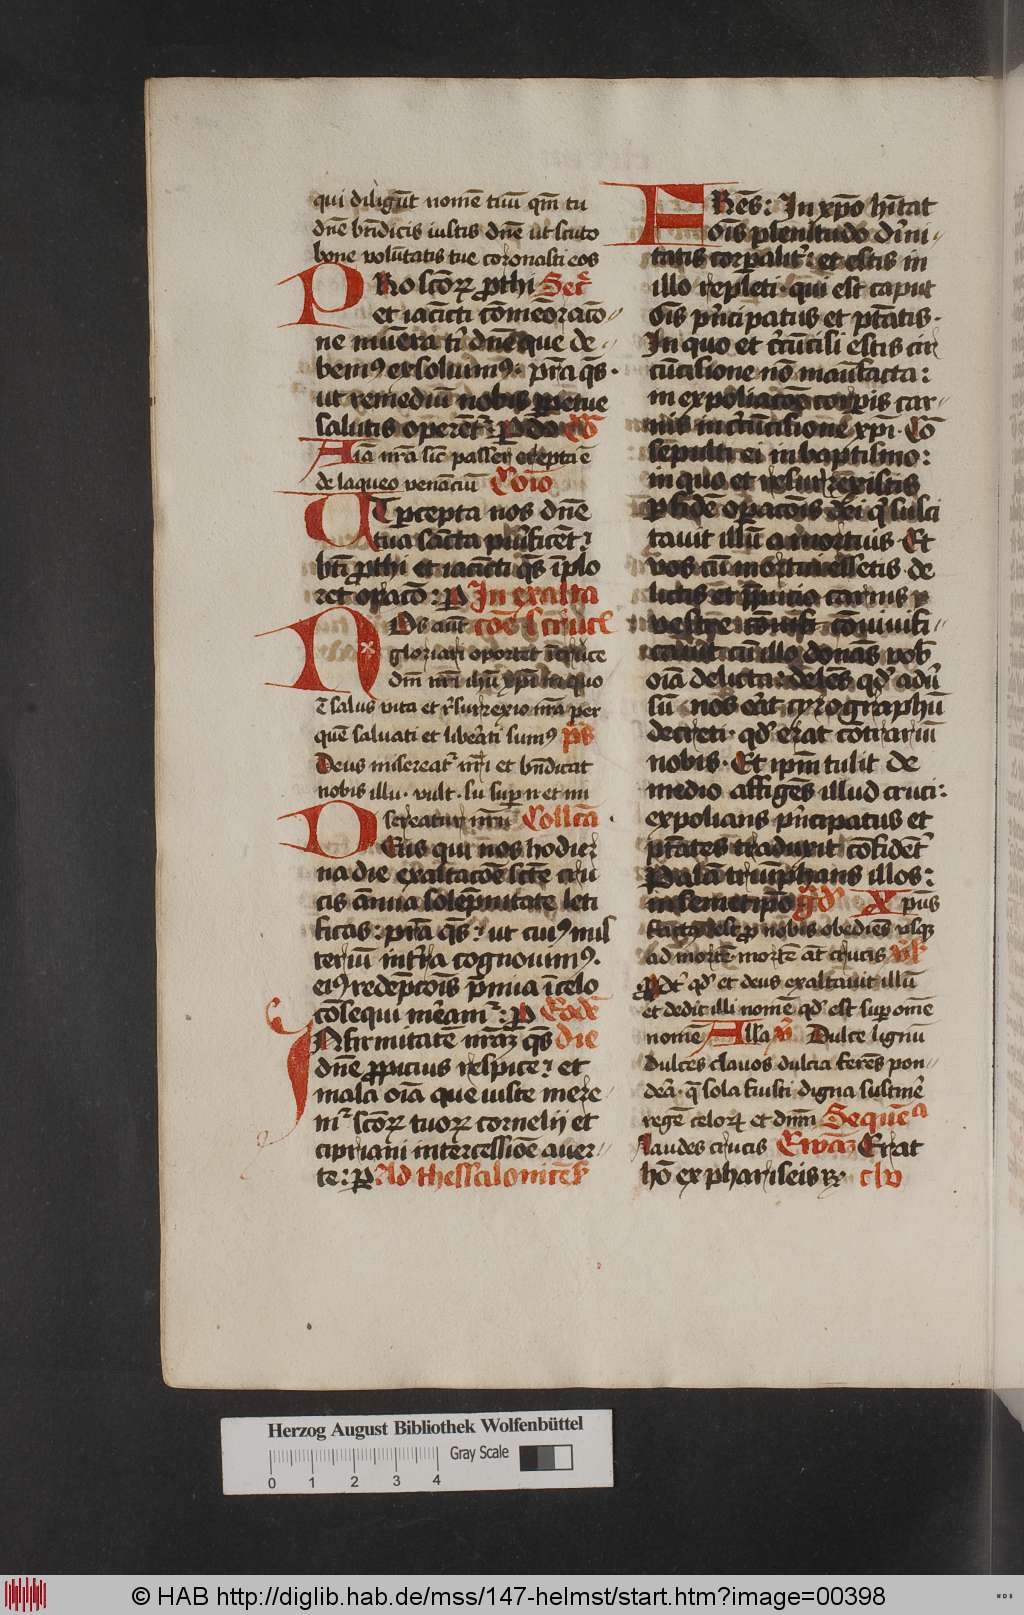 qui diligūt nomē tuū qm̄ tu
dn̄e bn̄dicis iustis dn̄e ut scuto
bone volūtatis tue coronasti eos
PRo sc̄oꝝ ꝓthi Secr̄
et iacīcti cōmeoracō
ne mūera tʼ dn̄e que de
bemꝰ exsoluimꝰ· p̄ra q̄s·
ut remediū nobis ꝑpetue
salutis operēt²: ꝑ dō Cō
Aīa nr̄a sic passer erepta ē
de laqueo venāciū Cōīo
UT ꝑcepta nos dn̄e
tua sācta purificēt:
bt̄i ꝓthi et iacīcti q̄s īplo
ret oracō: ꝑ In exalta
NOs aūt cōe s̄ crucẜ
gloriari oportet ī cruce
dn̄i nr̄i ihū xp̄i in quo
ē salus vita et resurrexio nr̄a per
quē saluati et liberati sumꝰ ps̄
Deus misereat² nr̄i et bn̄dicat
nobis illu· vult· su suꝑ n et mi
sereatur nr̄i Collc̄a·
DEus qui nos hodier
na die exaltacōe sc̄te cru
cis ānua solēpnitate leti
ficas: p̄ra q̄s: ut cuiꝰ mis
teriū in t̄ra cognouimꝰ·
eiꝰ redēpcōis p̄mia ī celo
cōsequi m̄eam²: ꝑ Eadē
INfirmitatē nr̄aꝫ q̄s die
dn̄e ꝓpicius respice: et
mala oīa que iuste mere
m² sc̄oꝝ tuoꝝ cornelij et
cipriani intercessiōe auer
te: ꝑ Ad thessalonicēs̄
FRēs: In xp̄o hītat
oīs plenitudo dīni
tatis corꝑalit²: et estis in
illo repleti· qui est caput
oīs p̄ncipatus et pt̄atis·
In quo et cʼcūcisi estis cir
cūcisione nō manufacta:
in expoliacōe corꝑis car
nis in cʼcūcisione xp̄i· Cō
sepulti ei in baptismo:
in quo et resurrexistis
ꝑ fidē oꝑacōis dei qʼ susci
tauit illū a mortuis· Et
vos cū mortui essetis de
lictis et p̄pucio carnis
vestre cōuiuifi
cauit cū illo donās vob̄
oīa delicta: delēs qd̄ adū
sū nos erat cyrographū
decreti· qd̄ erat cōtrariū
nobis· Et ip̄m tulit de
medio affigēs illud cruci:
expolians p̄ncipatus et
pt̄ates traduxit cōfidēt²
palā triūphans illos:
in semetip̄o Gd̄ Xpūs
factꝰ est ꝓ nobis obediēs usqꝫ
ad mortē· mortē aūt crucis v̄s
ꝓpt² qd̄ et deus exaltauit illū
et dedit illi nomē qd̄ est suꝑ omē
nomē Alla v̄ Dulce lignū
dulces clauos dulcia ferēs pon
dera· q̄ sola fuisti digna sustinēʼ
regē celoꝝ et dnm̄ Sequēᵃ
Laudes crucis Ewāꝫ Erat
hō ex phariseis rꝫ· clv
Herzog August Bibliothek Wolfenbüttel
Gray Scale
0 1 2 3 4
© HAB http://diglib.hab.de/mss/147-helmst/start.htm?image=00398